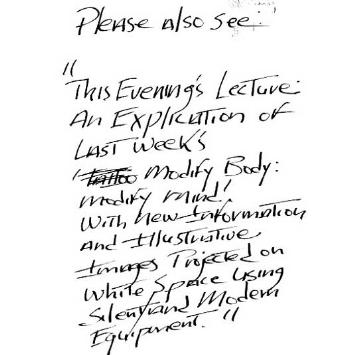 Please also see:
"
This Evening's Lecture:
An Explication of
Last Week's
'Tattoo Modify Body:
Modify Mind!'
With New Information
And Illustrative
Images Projected on
White Space Using
Silent and Modern
Equipment."